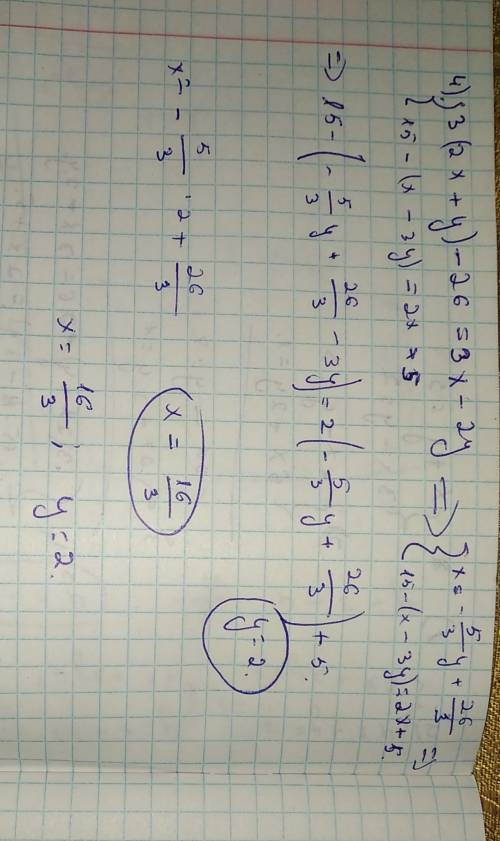 4) { 3 (2x + y) - 26 = 3x - 2y => { x = - 5/3 y + 26/3 =>
{ 15 - (x - 3y) = 2x + 5 { 15 - (x - 3y) = 2x + 5.
=> 15 - (- 5/3 y + 26/3 - 3y) = 2 (- 5/3 y + 26/3) + 5.
y = 2.
x = - 5/3 · 2 + 26/3 x = 16/3
x = 16/3 ; y = 2.